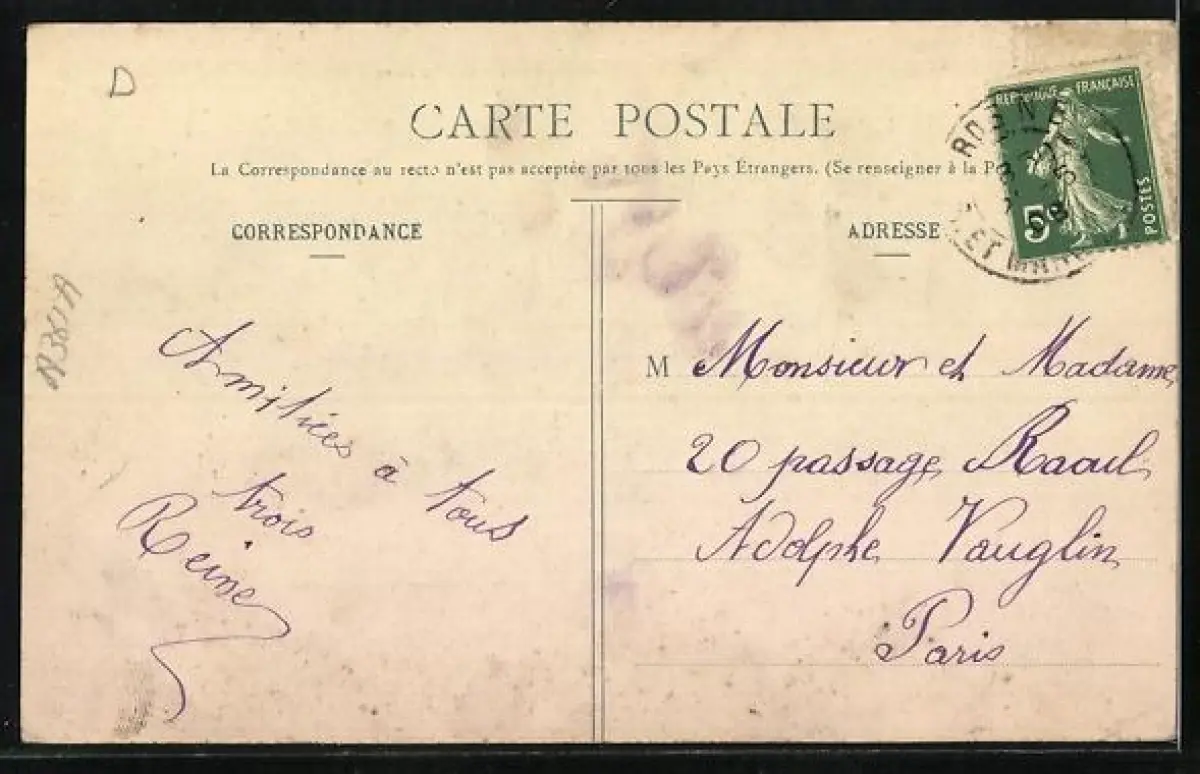 D
CARTE POSTALE
La Correspondance au recto n'est pas acceptée par tous les Pays Étrangers. (Se renseigner à la
CORRESPONDANCE
ADRESSE
RÉPUBLIQUE FRANÇAISE
5c
POSTES
ET
Amitiées à tous
trois
Reine
M Monsieur et Madame
20 passage Raoul
Adolphe Vauglin
Paris